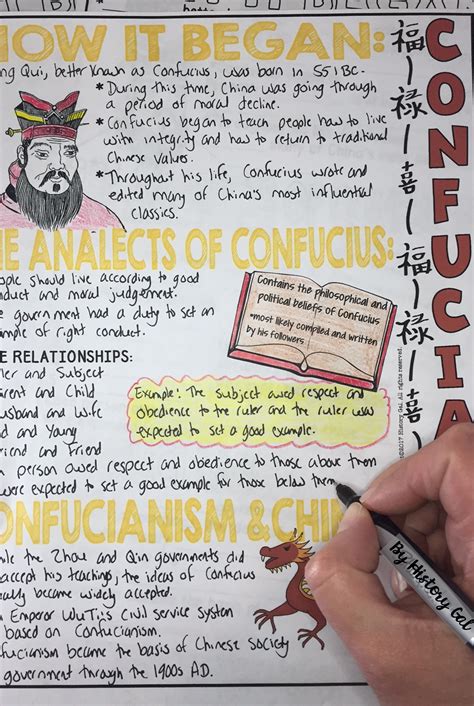 HOW IT BEGAN:
ng Qui, better known as Confucius, was born in 551 BC.
*During this time, China was going through
a period of moral decline.
*Confucius began to teach people how to live
with integrity and how to return to traditional
Chinese values.
*Throughout his life, Confucius wrote and
edited many of China's most influential
classics.
HE ANALECTS OF CONFUCIUS:
ople should live according to good
nduct and moral judgement.
e government had a duty to set an
mple of right conduct.
Contains the philosophical and
political beliefs of Confucius
*most likely compiled and written
by his followers
E RELATIONSHIPS:
ler and Subject
arent and Child
usband and Wife
ld and Young
riend and Friend
Example: The subject owed respect and
obedience to the ruler and the ruler was
expected to set a good example.
person owed respect and obedience to those above them
were expected to set a good example for those below them
ONFUCIANISM & CHIN
hile the Zhou and Qin governments did
accept his teachings, the ideas of Confucius
eally became widely accepted.
Emperor WuTi's civil service system
based on Confucianism.
nfucianism became the basis of Chinese society
government through the 1900s AD.
CONFUCIA
福
禄
喜
福
禄
喜
福
©2017 History Gal. All rights reserved
By History Gal